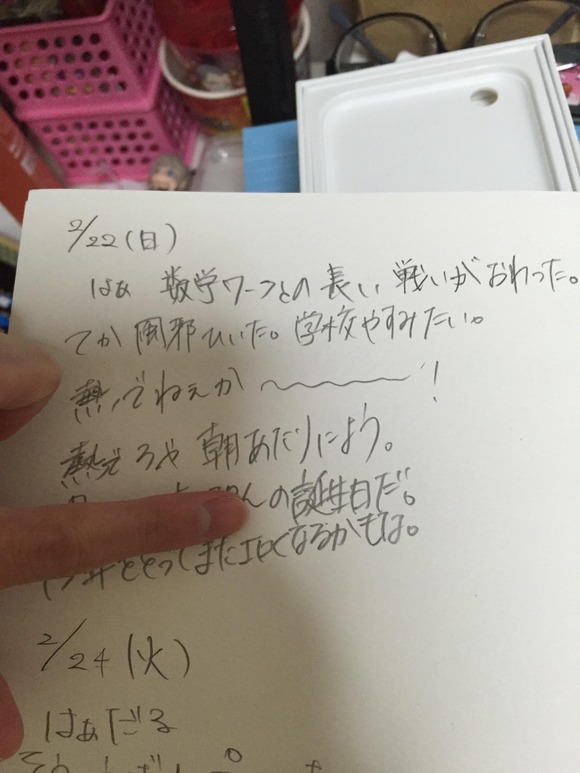 2/22(日)
はぁ 数学ワークとの長い戦いがおわった。
てか風邪ひいた。学校やすみたい。
熱でねぇか〜〜〜〜!
熱 朝あたりによう。
んの誕生日だ。
またエロくなるかもな。
2/24(火)
はぁだる